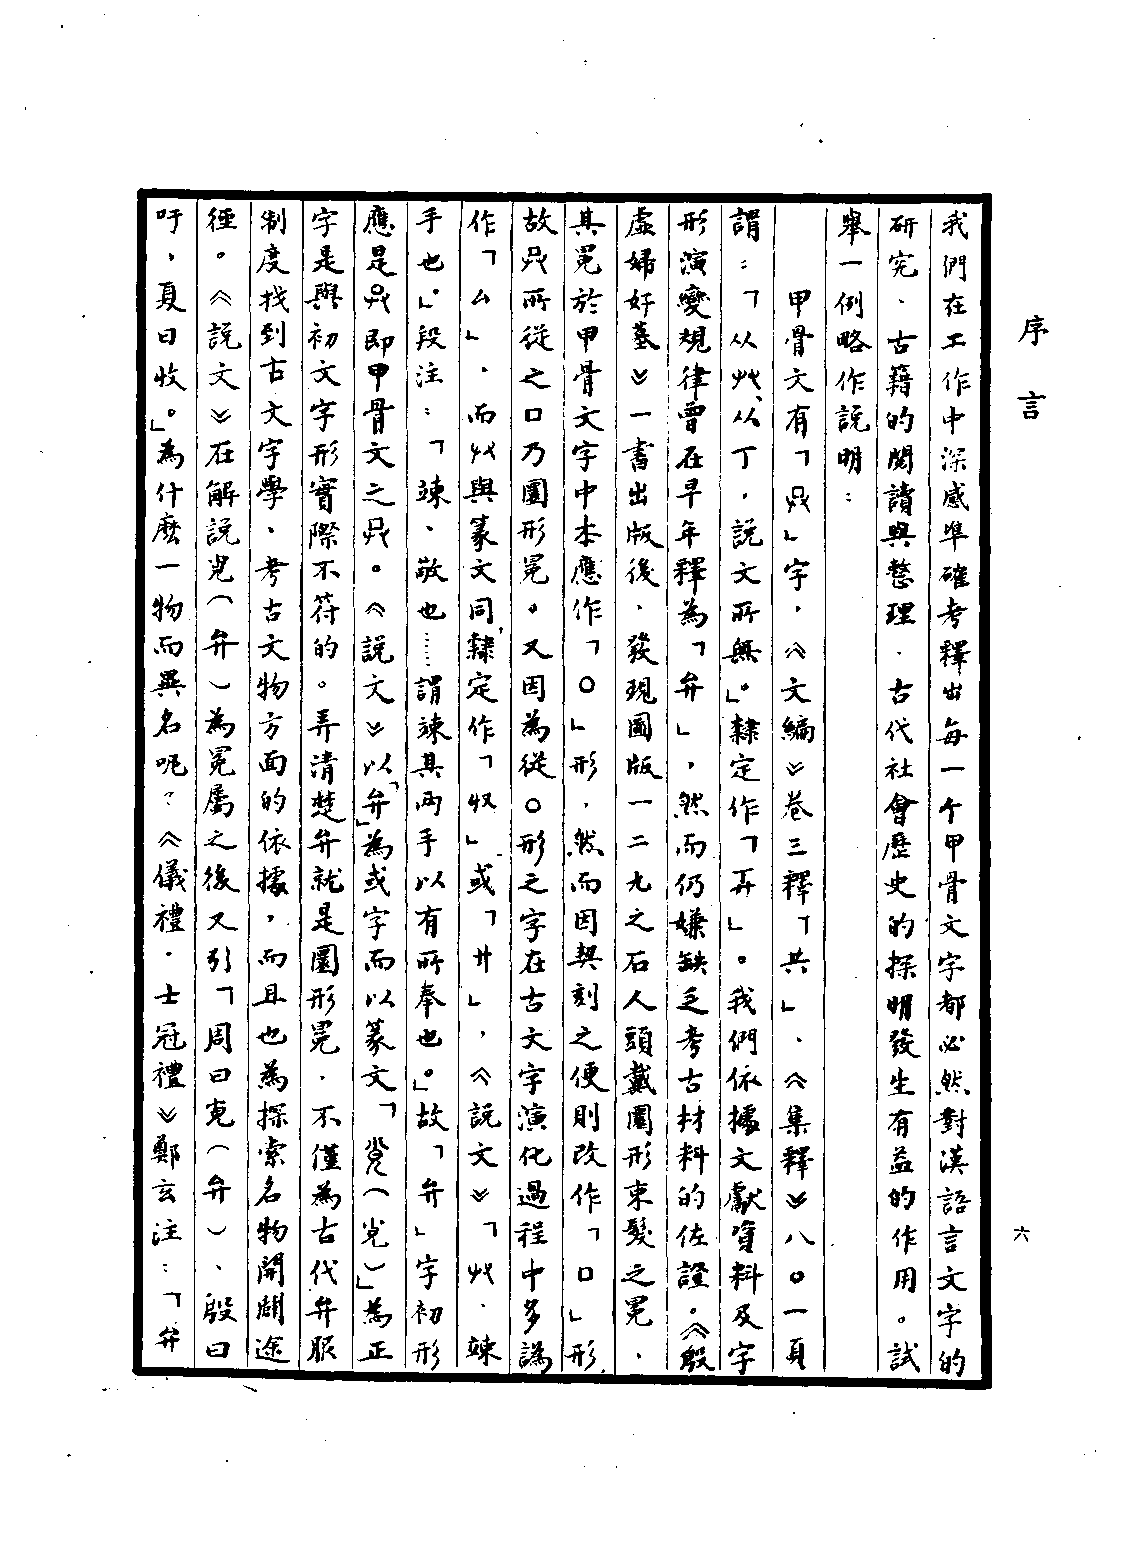 序言
六
我們在工作中深感準確考釋出每一个甲骨文字都必然對漢語言文字的
研究、古籍的閱讀與整理、古代社會歷史的探明發生有益的作用。試
舉一例略作説明：
甲骨文有「」字，《文編》卷三釋「共」、《集釋》八〇一頁
謂：「从廾、从丁，説文所無。」隸定作「㢲」。我們依據文獻資料及字
形演變規律曾在早年釋為「弁」，然而仍嫌缺乏考古材料的佐證。《殷
虛婦好墓》一書出版後，發現圖版一二九之石人頭戴圜形束髮之冕，
其冕於甲骨文字中本應作「〇」形，然而因契刻之便則改作「口」形，
故所從之口乃圜形冕。又因為從〇形之字在古文字演化過程中多譌
作「厶」，而廾與篆文同，隸定作「収」或「廾」，《説文》「廾，竦
手也。」段注：「竦、敬也……謂竦其兩手以有所奉也。」故「弁」字初形
應是即甲骨文之。《説文》以「弁」為或字而以篆文「（皃）」為正
字是與初文字形實際不符的。弄清楚弁就是圜形冕，不僅為古代弁服
制度找到古文字學、考古文物方面的依據，而且也為探索名物開闢途
徑。《説文》在解説皃（弁）為冕屬之後又引「周曰（弁）、殷曰
吁，夏曰收。」為什麽一物而異名呢？《儀禮·士冠禮》鄭玄注：「弁